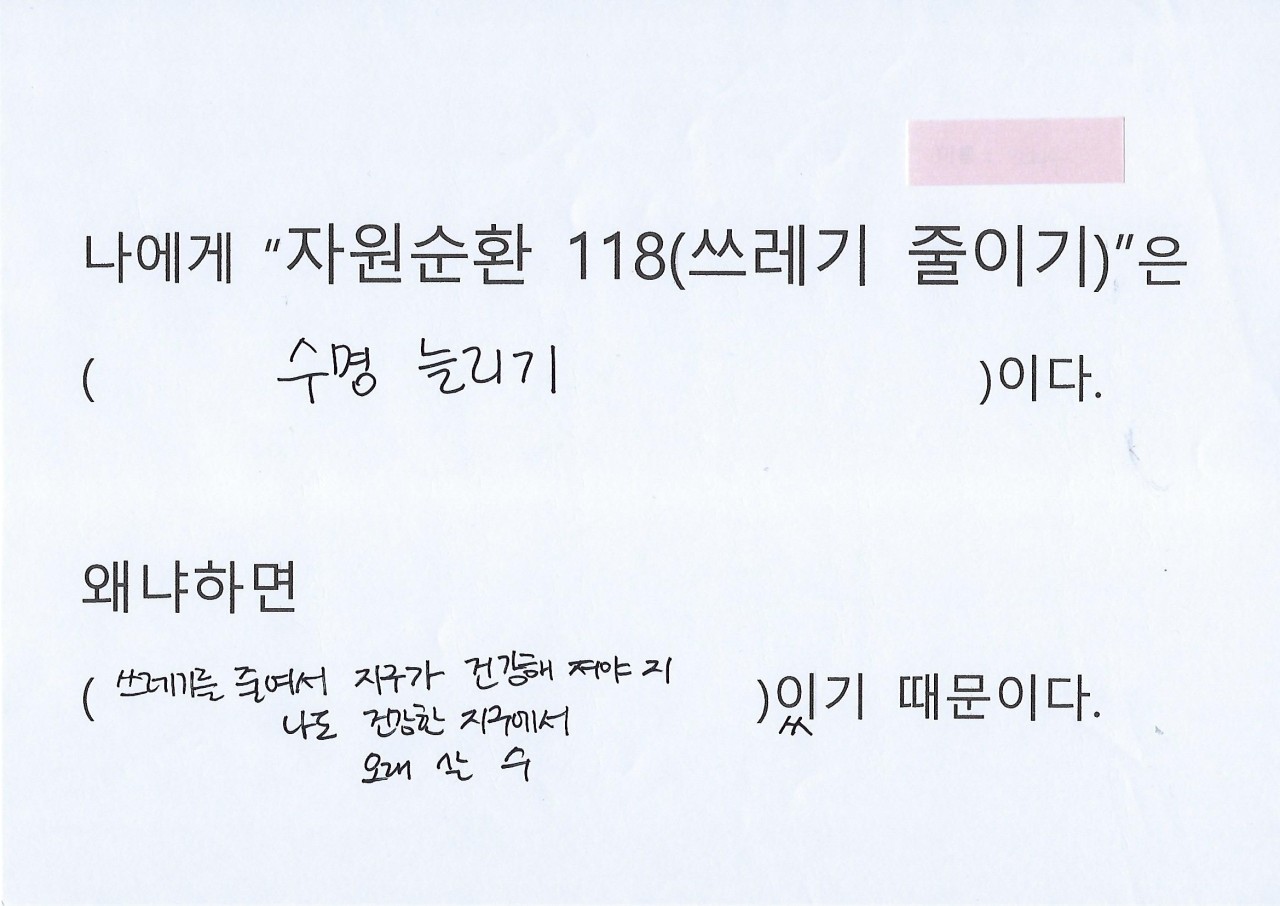 나에게 "자원순환 118(쓰레기 줄이기)"은
( 수명 늘리기 )이다.
왜냐하면
( 쓰레기를 줄여서 지구가 건강해 져야 지 )있기 때문이다.
나도 건강한 지구에서
오래 사는 수